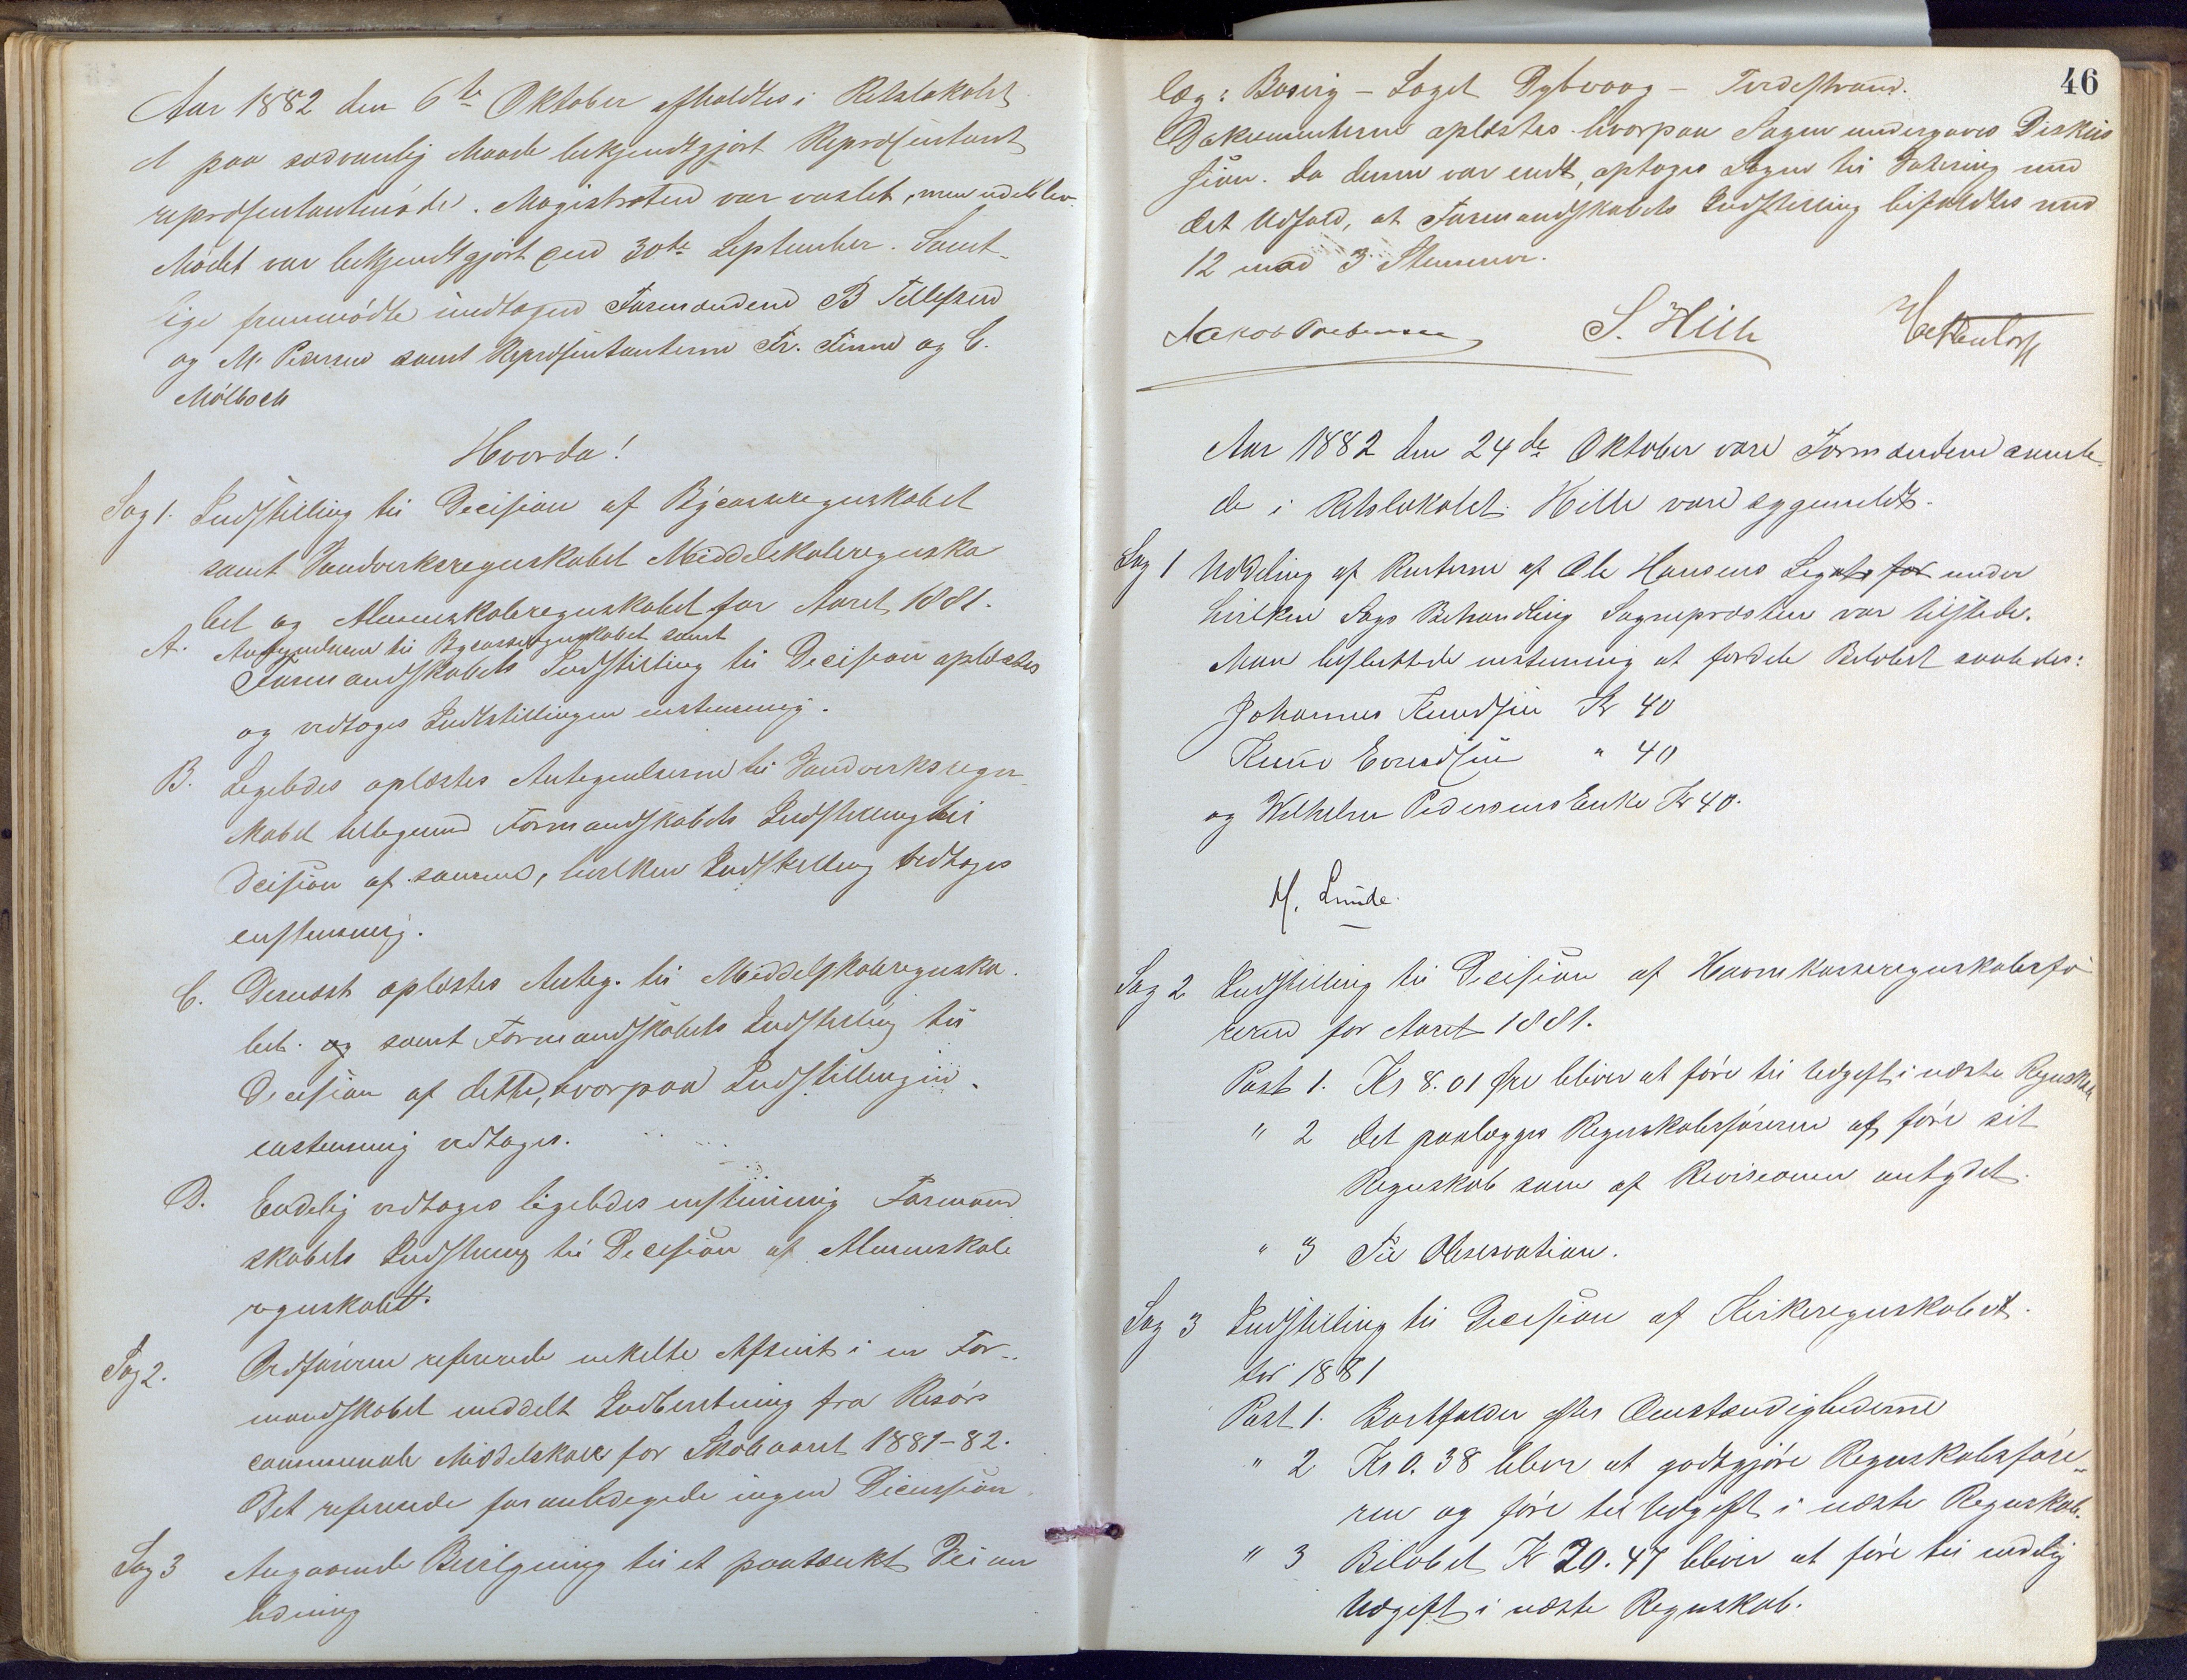 Aar 1882 den 6te Oktober afholdtes i Retslokalet
et paa sædvanlig Maade bekjendtgjort Repræsentant
repræsentantmøde. Magistraten var varslet, men udeblev.
Mødet var bekjendtgjort den 30te September. Samt-
lige fremmødte undtagen Formændene B Tellefsen
og M. Pedersen samt Repræsentanterne Fr. Finne og C.
Mølbach
Hvorda!
Sag 1. Indstilling til Decision af Bycasseregnskabet
samt Vandverksregnskabet Middelskoleregnska
bet og Almueskoleregnskabet for Aaret 1881.
A. Antegnelserne til Bycasseregnskabet samt
Formandskabets Indstilling til Decision oplæstes
og vedtoges Indstillingen enstemmig.
B. Ligeledes oplæstes Antegnelserne til Vandverksregn
skabet tilligemed Formandskabets Indstilling til
Decision af samme, hvilken Indstilling vedtoges
enstemmig.
C. Dernæst oplæstes Anteg. til Middelskoleregnska
bet. og samt Formandskabets Indstilling til
Decision af dette, hvorpaa Indstillingen
enstemmig vedtoges.
D. Endelig vedtoges ligeledes enstemmig Formand
skabets Indstilling til Decision af Almueskole
regnskabet.
Sag 2. Ordføreren refererede enkelte Afsnit i en For-
mandskabet meddelt Indberetning fra Risørs
communale Middelskole for Skoleaaret 1881-82.
Det refererede foranledigede ingen Discussion.
Sag 3 Angaaende Bevilgning til et paatænkt Veian
lædning
46
læg: Bosvig - Laget Dybvaag - Tvedestrand.
Dokumenterne oplæstes hvorpaa Sagen undergaves Diskus
sion. Da denne var endt, optoges Sagen til Votering med
det Udfald, at Formandskabets Indstilling bifaldtes med
12 mod 3 Stemmer.
Jakob Prebensen S. Hille
Aar 1882 den 24de Oktober vare Formændene samle-
de i Retslokalet. Hille vare sygemeldt.
Sag 1 Uddeling af Renterne af Ole Hansens Legat for under
hvilken Sags Behandling Sognepræsten var tilstede.
Man besluttede enstemmig at fordele Beløbet saaledes:
Johannes Knudsen Kr 40
Knud Evendsen " 40
og Wilhelm Pedersens Enke Kr 40.
M. Lunde.
Sag 2 Indstilling til Decision af Havnekasseregnskabsfø
reren for Aaret 1881.
Post 1. Kr 8.01 Øre bliver at føre til Udgift i næste Regnskab
" 2 Det paalægges Regnskabsføreren at føre sit
Regnskab som af Revisionen antydet.
" 3 Til Observation.
Sag 3 Indstilling til Decision af Kirkeregnskabet
for 1881
Post 1. Bortfalder efter Omstændighederne
" 2 Kr 0.38 bliver at godtgjøre Regnskabsføre-
ren og føre til Udgift i næste Regnskab.
" 3 Beløbet Kr 20.47 bliver at føre til endelig
Udgift i næste Regnskab.